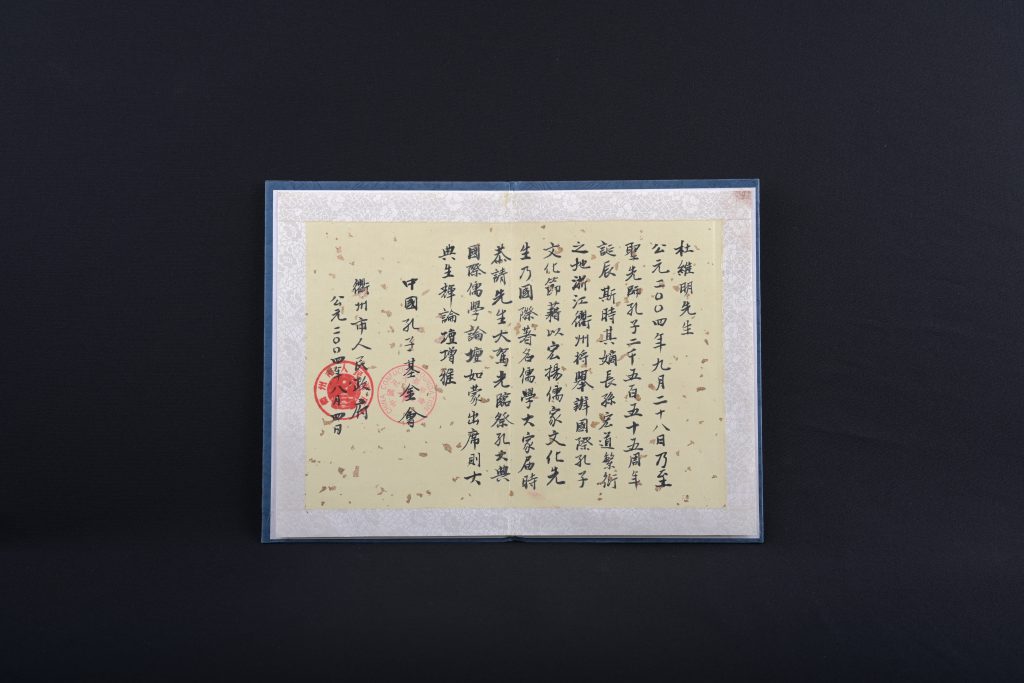 杜維明先生
公元二〇〇四年九月二十八日乃至
聖先師孔子二千五百五十五周年
誕辰斯時其嫡長孫宏道繁衍
之地浙江衢州将舉辦國際孔子
文化節藉以宏揚儒家文化先
生乃國際著名儒學大家届時
恭請先生大駕光臨祭孔大典
國際儒學論壇如蒙出席則大
典生輝論壇增雅
中國孔子基金會
衢州市人民政府
公元二〇〇四年八月四日